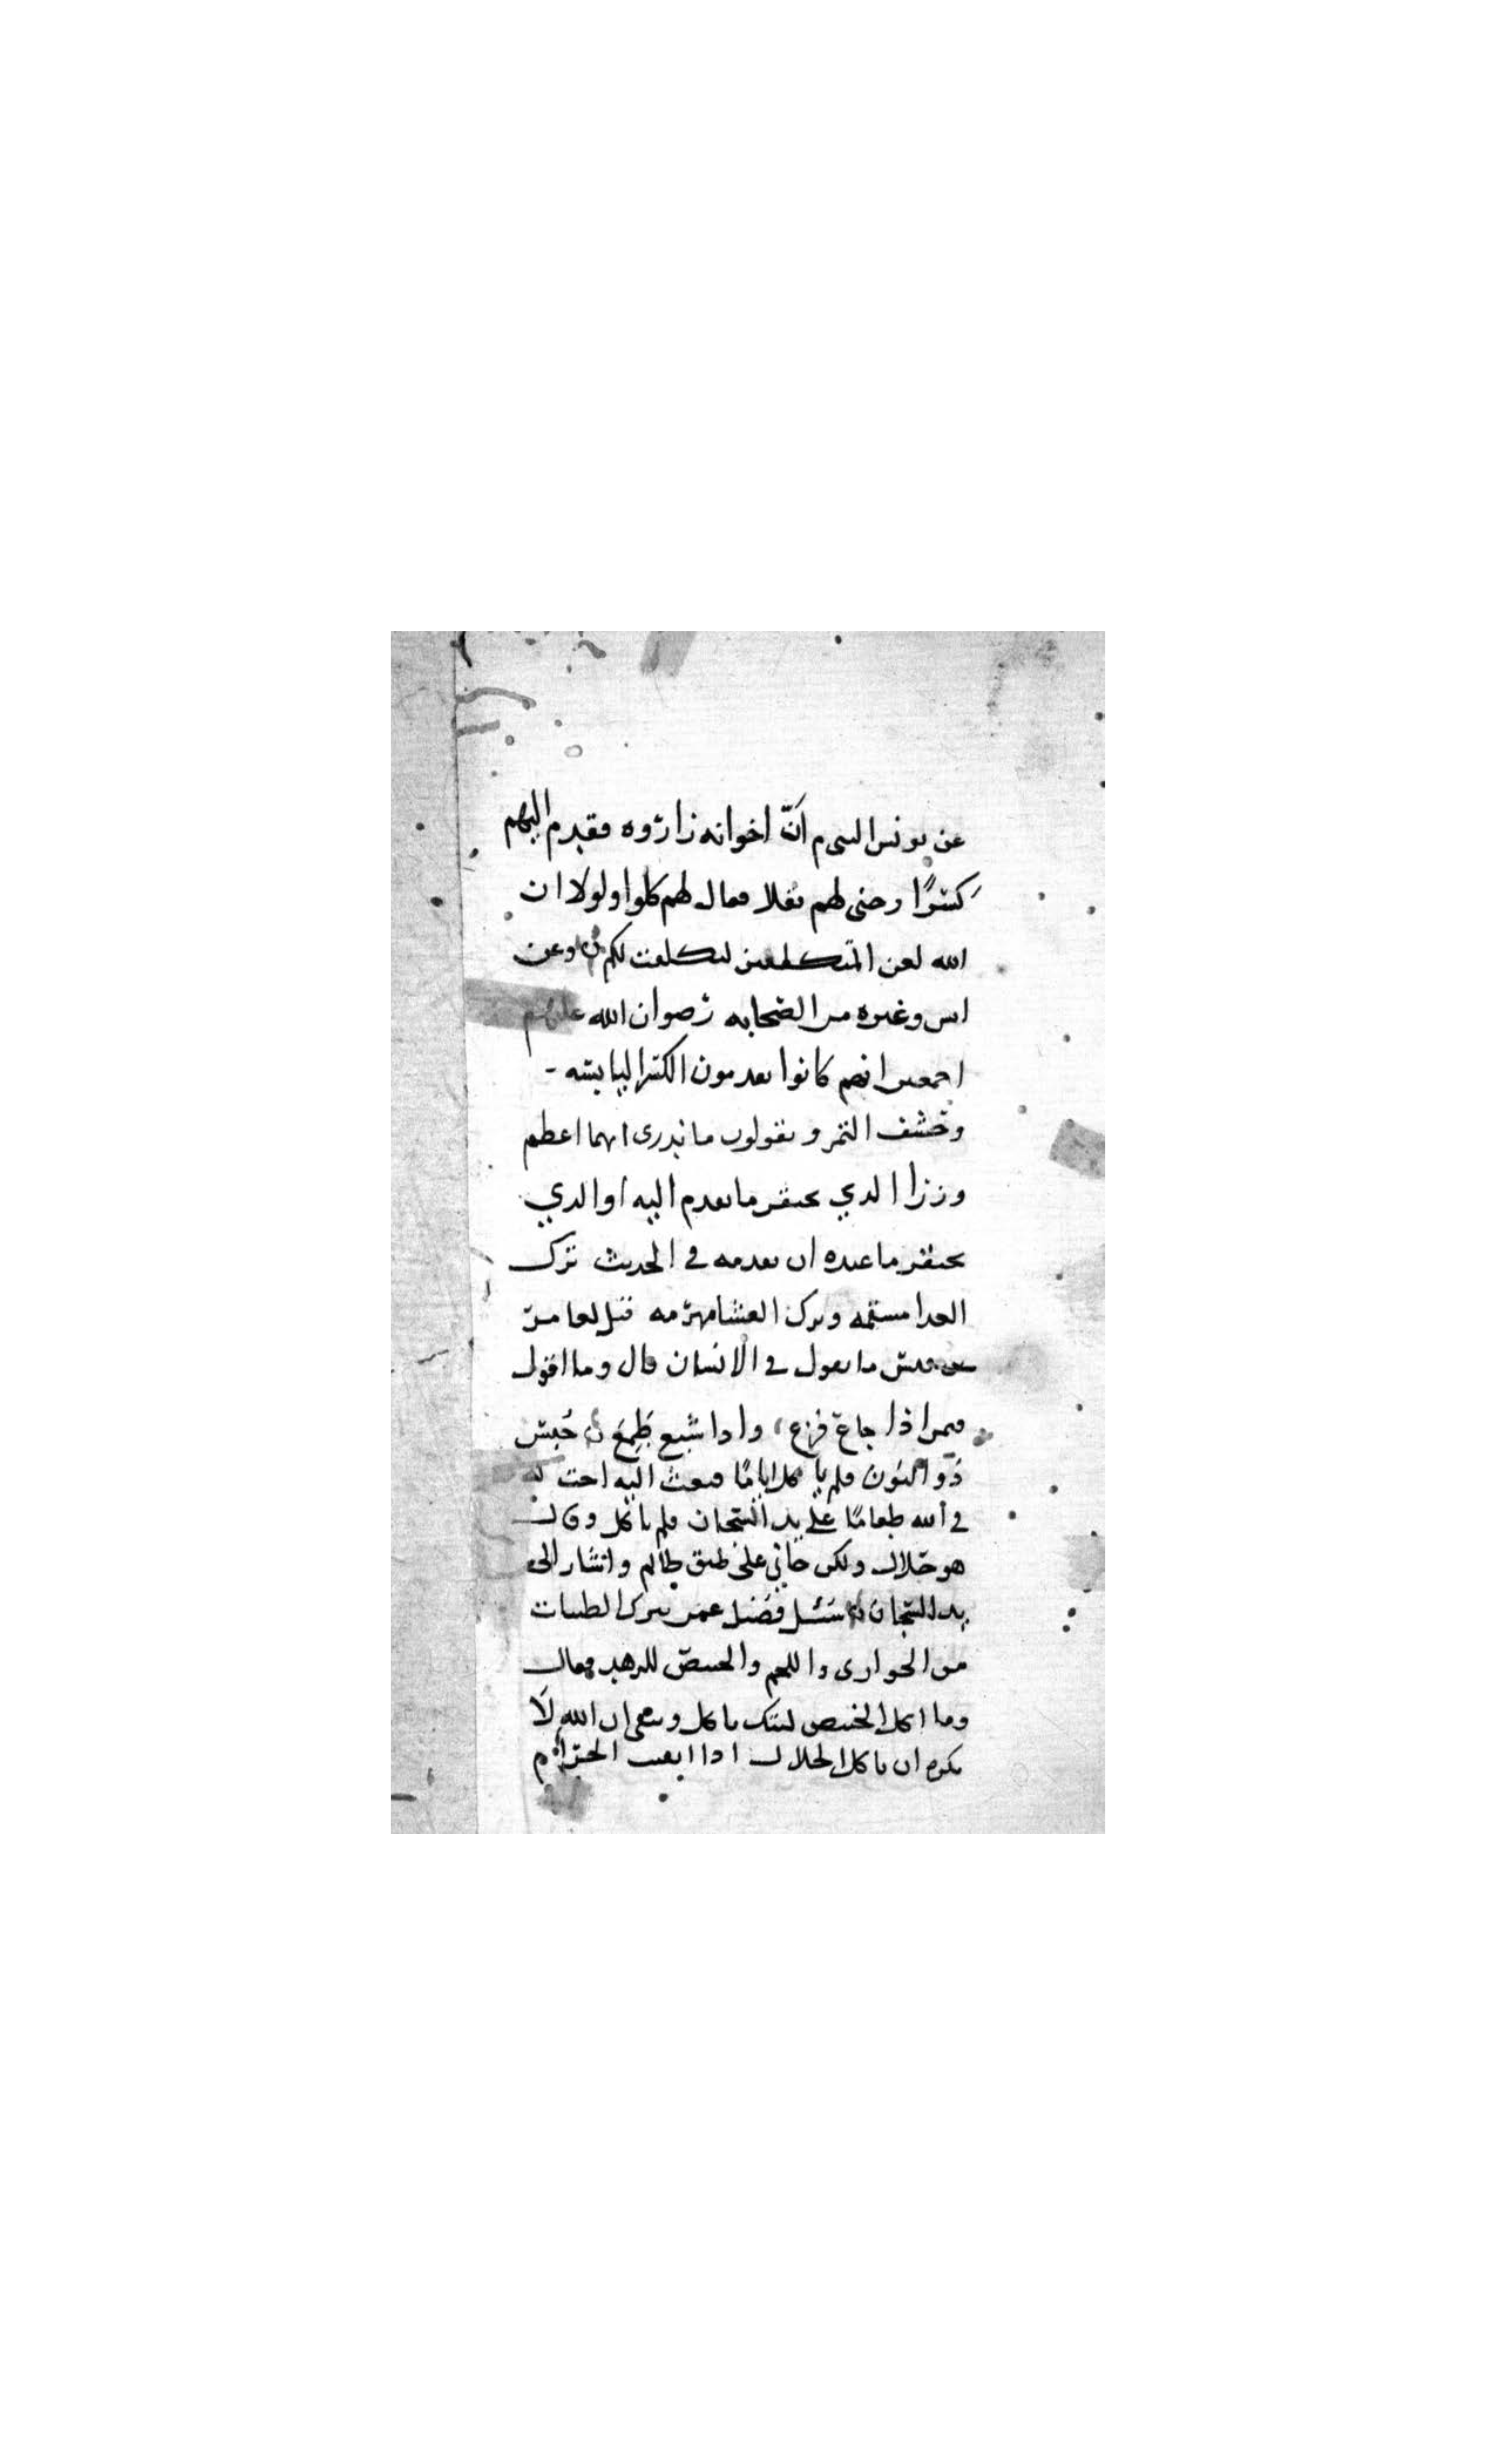 عن يونس النبي م أنّ اخوانه زاروه فقدم اليهم
كسرًا وجنى لهم بقلا فقال لهم كلوا ولولا ان
الله لعن المتكلفين لتكلفت لكم وعن
انس وغيره من الصحابه رضوان الله عليهم
اجمعين انهم كانوا يقدمون الكسر اليابسه
وحشف التمر ويقولون ما ندرى ايهما اعظم
وزرا الذي يحتقر ما يقدم اليه او الذي
يحتقر ما عنده ان يقدمه في الحديث ترك
الغدا مسقمه وترك العشا مهرمه قيل لعامر
بن قيس ما تقول في الانسان قال وما اقول
فيمن اذا جاع فزع واذا شبع طمع حُبس
ذو النون فلم ياكل اياما فبعث اليه اخت له
في الله طعامًا على يد السجان فلم ياكل وقال
هو حلال ولكن جاني على طبق ظالم واشار الى
يد السجان سئل فضيل عمن يترك الطيبات
من الحوارى واللحم والخبيص للزهد فقال
وما اكل الخبيص ليتك تاكل وتتقى ان الله لا
يكره ان تاكل الحلال اذا اتقيت الحرام